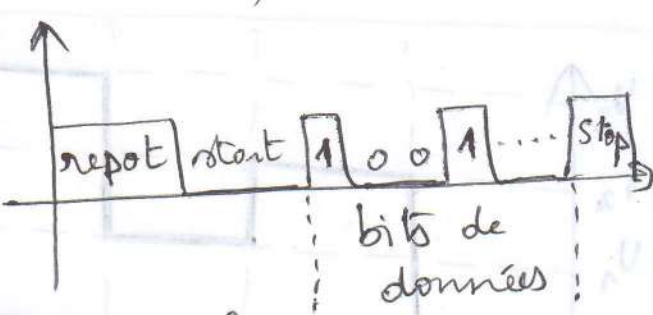 repot start 1 0 0 1 ..... Stop
bits de
données